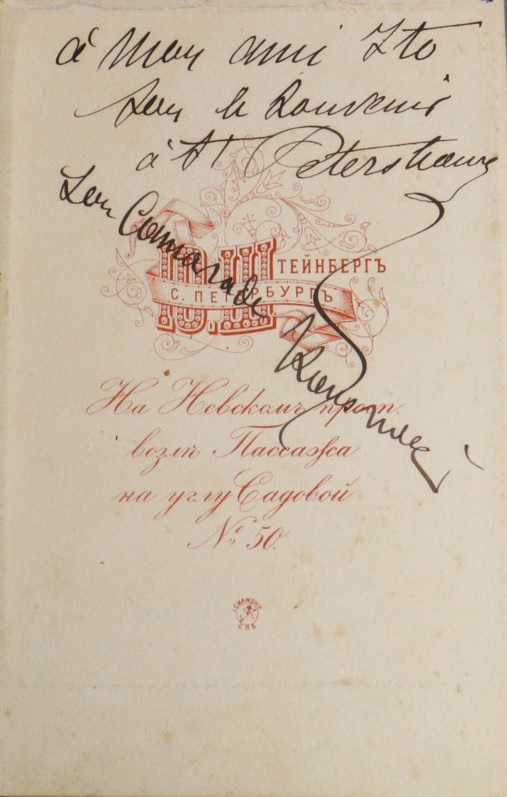 à Mon ami Ito
pour le Souvenir
à St Petersbourg
Son Camarade
Ю.ШТЕЙНБЕРГЪ
С. ПЕТЕРБУРГЪ
На Невскомъ прост.
возлѣ Пассажа
на углу Садовой
№ 50.